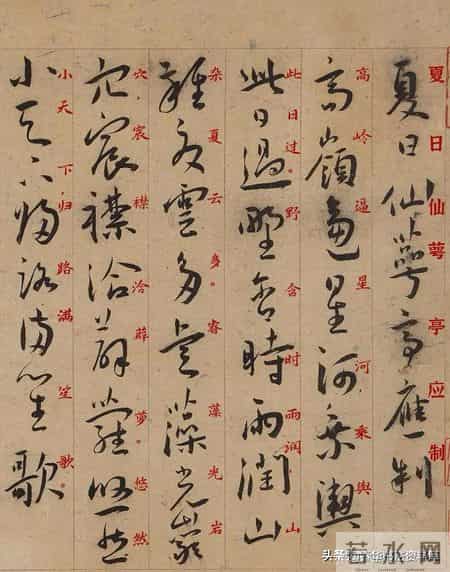 夏日仙萼亭應制
夏日仙萼亭应制
高嶺逼星河乘輿
高岭逼星河乘舆
此日過野含時雨潤山
此日过。野含时雨润山
雜夏雲多睿藻光巖
杂夏云多。睿藻光岩
穴宸襟洽薜蘿悠然
穴,宸襟洽薜萝。悠然
小天下歸路滿笙歌
小天下,归路满笙歌。
若水网